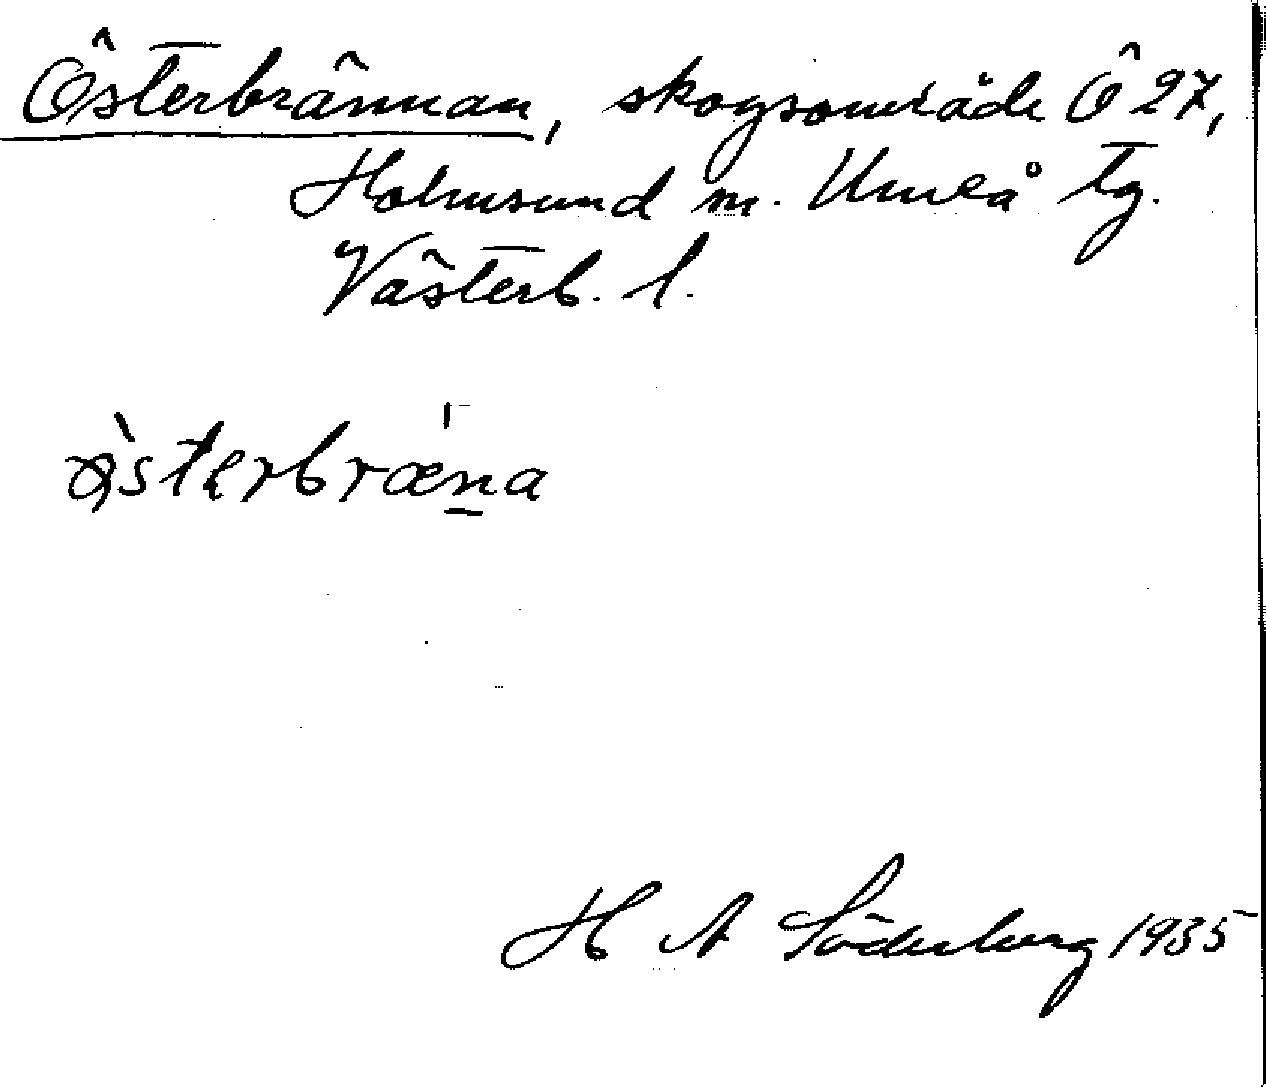 Österbrännan, skogsområde Ö 27,
Holmsund m. Umeå tg.
Västerb. l.
ø̀stərbræ̍n̲a
H A Söderberg 1935